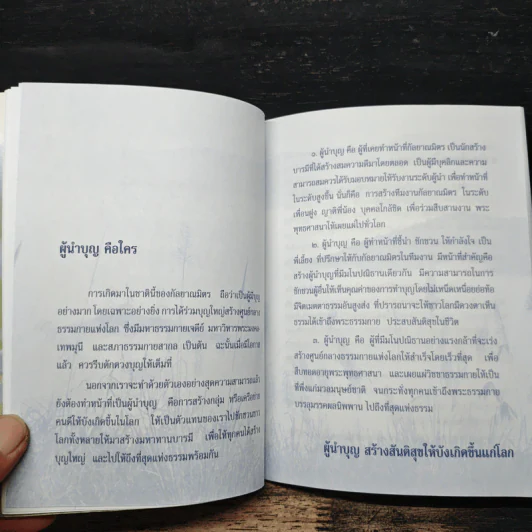 ผู้นำบุญ คือใคร
การเกิดมาในชาตินี้ของกัลยาณมิตร ถือว่าเป็นผู้มีบุญ
อย่างมาก โดยเฉพาะอย่างยิ่ง การได้ร่วมบุญใหญ่สร้างศูนย์กลาง
ธรรมกายแห่งโลก ซึ่งมีมหาธรรมกายเจดีย์ มหาวิหารพระมงคล
เทพมุนี และสภาธรรมกายสากล เป็นต้น ฉะนั้นเมื่อมีโอกาส
แล้ว ควรรีบตักตวงบุญให้เต็มที่
นอกจากเราจะทำด้วยตัวเองอย่างสุดความสามารถแล้ว
ยังต้องทำหน้าที่เป็นผู้นำบุญ คือการสร้างกลุ่ม หรือเครือข่าย
คนดีให้บังเกิดขึ้นในโลก ให้เป็นตัวแทนของเราไปชักชวนชาว
โลกทั้งหลายให้มาสร้างมหาทานบารมี เพื่อให้ทุกคนได้สร้าง
บุญใหญ่ และไปให้ถึงที่สุดแห่งธรรมพร้อมกัน
๑. ผู้นำบุญ คือ ผู้ที่เคยทำหน้าที่กัลยาณมิตร เป็นนักสร้าง
บารมีที่ได้สร้างสมความดีมาโดยตลอด เป็นผู้มีบุคลิกและความ
สามารถสมควรได้รับมอบหมายให้รับงานระดับผู้นำ เพื่อทำหน้าที่
ในระดับสูงขึ้น นั่นก็คือ การสร้างทีมงานกัลยาณมิตร ในระดับ
เพื่อนฝูง ญาติพี่น้อง บุคคลใกล้ชิด เพื่อร่วมสืบสานงาน พระ
พุทธศาสนาให้เผยแผ่ไปทั่วโลก
๒. ผู้นำบุญ คือ ผู้ทำหน้าที่ชี้นำ ชักชวน ให้กำลังใจ เป็น
พี่เลี้ยง ที่ปรึกษาให้กับกัลยาณมิตรในทีมงาน มีหน้าที่สำคัญคือ
สร้างผู้นำบุญที่มีมโนปณิธานเดียวกัน มีความสามารถในการ
ชักชวนผู้อื่นให้เห็นคุณค่าของการทำบุญโดยไม่เหน็ดเหนื่อยย่อท้อ
มีจิตเมตตาธรรมอันสูงส่ง ที่ปรารถนาจะให้ชาวโลกมีดวงตาเห็น
ธรรมได้เข้าถึงพระธรรมกาย ประสบสันติสุขในชีวิต
๓. ผู้นำบุญ คือ ผู้ที่มีมโนปณิธานอย่างแรงกล้าที่จะเร่ง
สร้างศูนย์กลางธรรมกายแห่งโลกให้สำเร็จโดยเร็วที่สุด เพื่อ
สืบทอดอายุพระพุทธศาสนา และเผยแผ่วิชชาธรรมกายให้เป็น
ที่พึ่งแก่มวลมนุษยชาติ จนกระทั่งทุกคนเข้าถึงพระธรรมกาย
บรรลุมรรคผลนิพพาน ไปถึงที่สุดแห่งธรรม
ผู้นำบุญ สร้างสันติสุขให้บังเกิดขึ้นแก่โลก